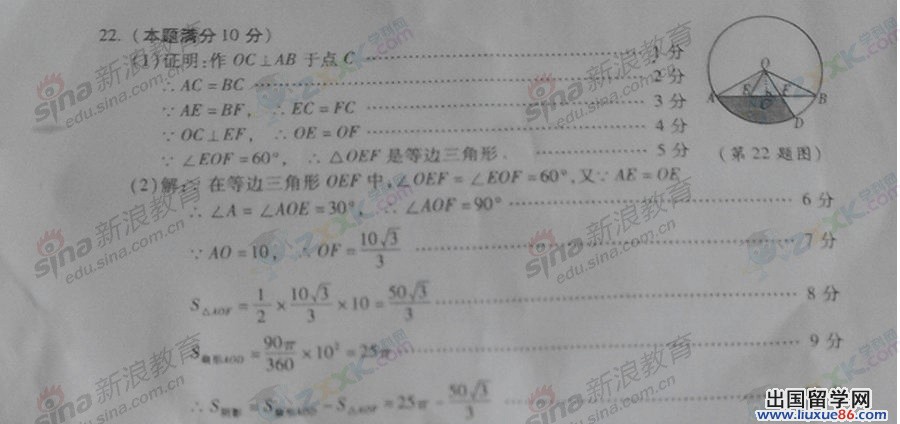 22.（本题满分10分）
(1)证明:作 OC⊥AB 于点 C ⋯⋯ 1分
∴ AC = BC ⋯⋯ 2分
∵ AE = BF， ∴ EC = FC ⋯⋯ 3分
∵ OC⊥EF， ∴ OE = OF ⋯⋯ 4分
∵ ∠EOF = 60°， ∴ △OEF 是等边三角形． ⋯⋯ 5分
O
E F
A C B
D
（第22题图）
(2)解:∵ 在等边三角形 OEF 中,∠OEF = ∠EOF = 60°,又∵ AE = OE
∴ ∠A = ∠AOE = 30°， ∴ ∠AOF = 90° ⋯⋯ 6分
∵ AO = 10， ∴ OF = 10√3/3 ⋯⋯ 7分
S△AOF = 1/2 × 10√3/3 × 10 = 50√3/3 ⋯⋯ 8分
S扇形AOD = 90π/360 × 10² = 25π ⋯⋯ 9分
∴ S阴影 = S扇形AOD − S△AOF = 25π − 50√3/3 ⋯⋯
sina 新浪教育
edu.sina.com.cn
ZXXK.com
学科网
出国留学网
www.liuxue86.com